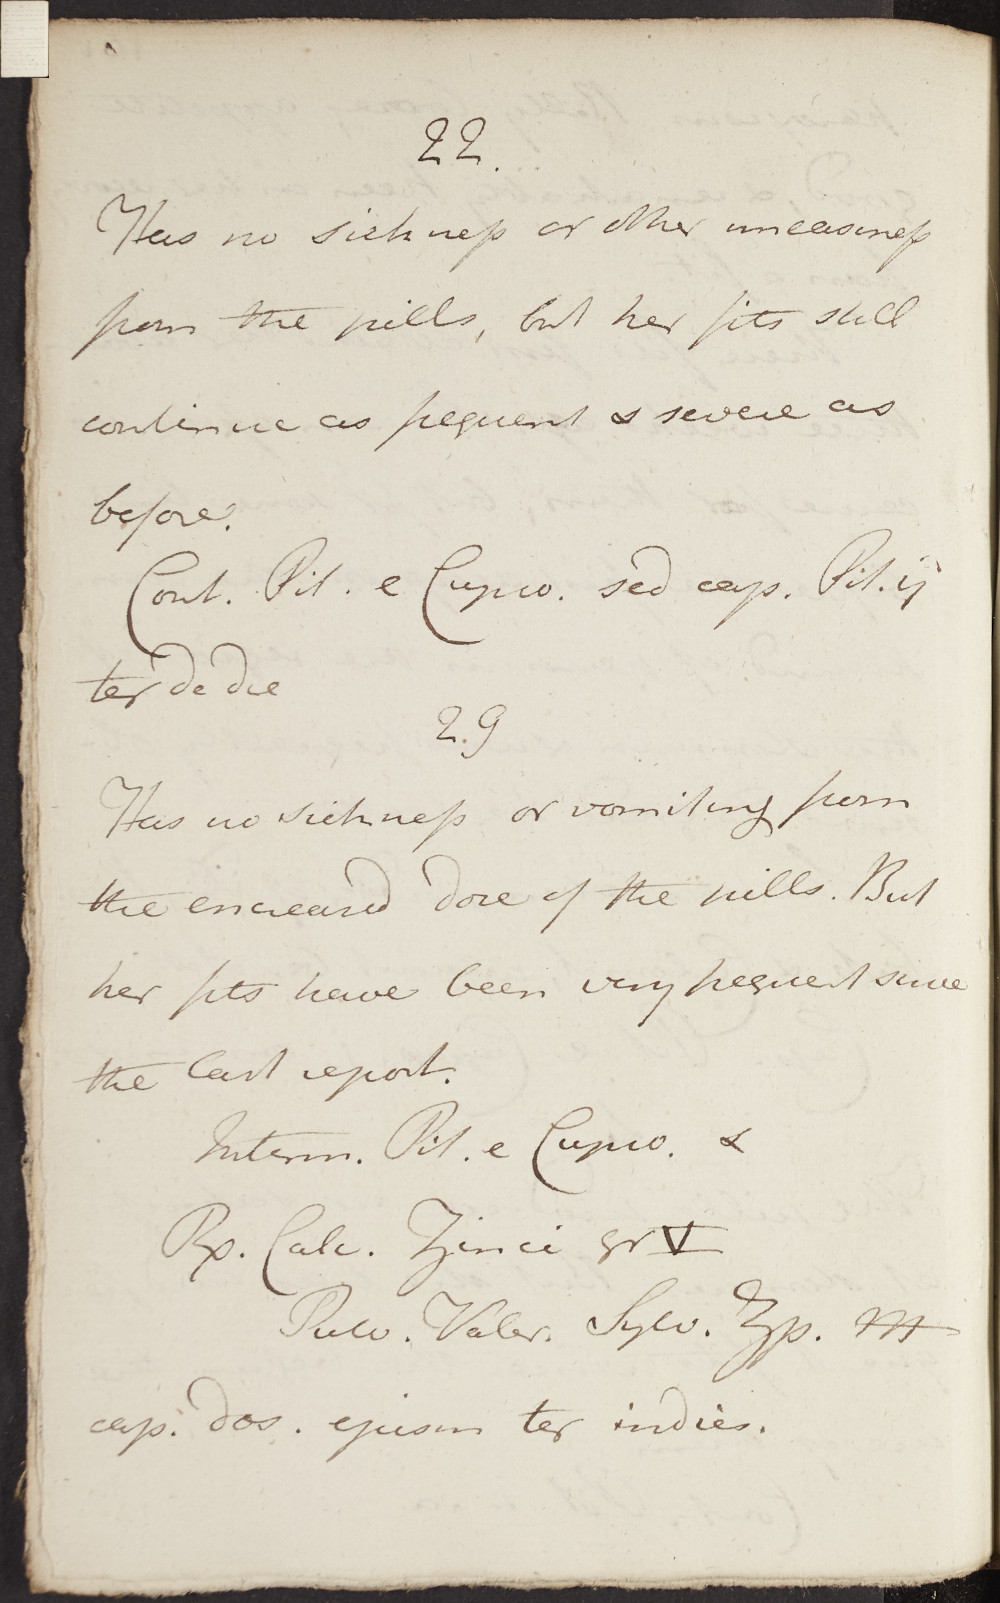 22.
Has no sickness or other uneasiness
from the pills, but her fits still
continue as frequent & severe as
before.
Cont. Pil. e Cupro. sed cap. Pil. ij
ter de die
29
Has no sickness or vomiting from
the encreased dose of the pills. But
her fits have been very frequent since
the last report.
Interm. Pil. e Cupro. &
Rx. Calc. Zinci gr V
Pulv. Valer. Sylv. ʒp. m
cap. dos. ejusm ter indies.